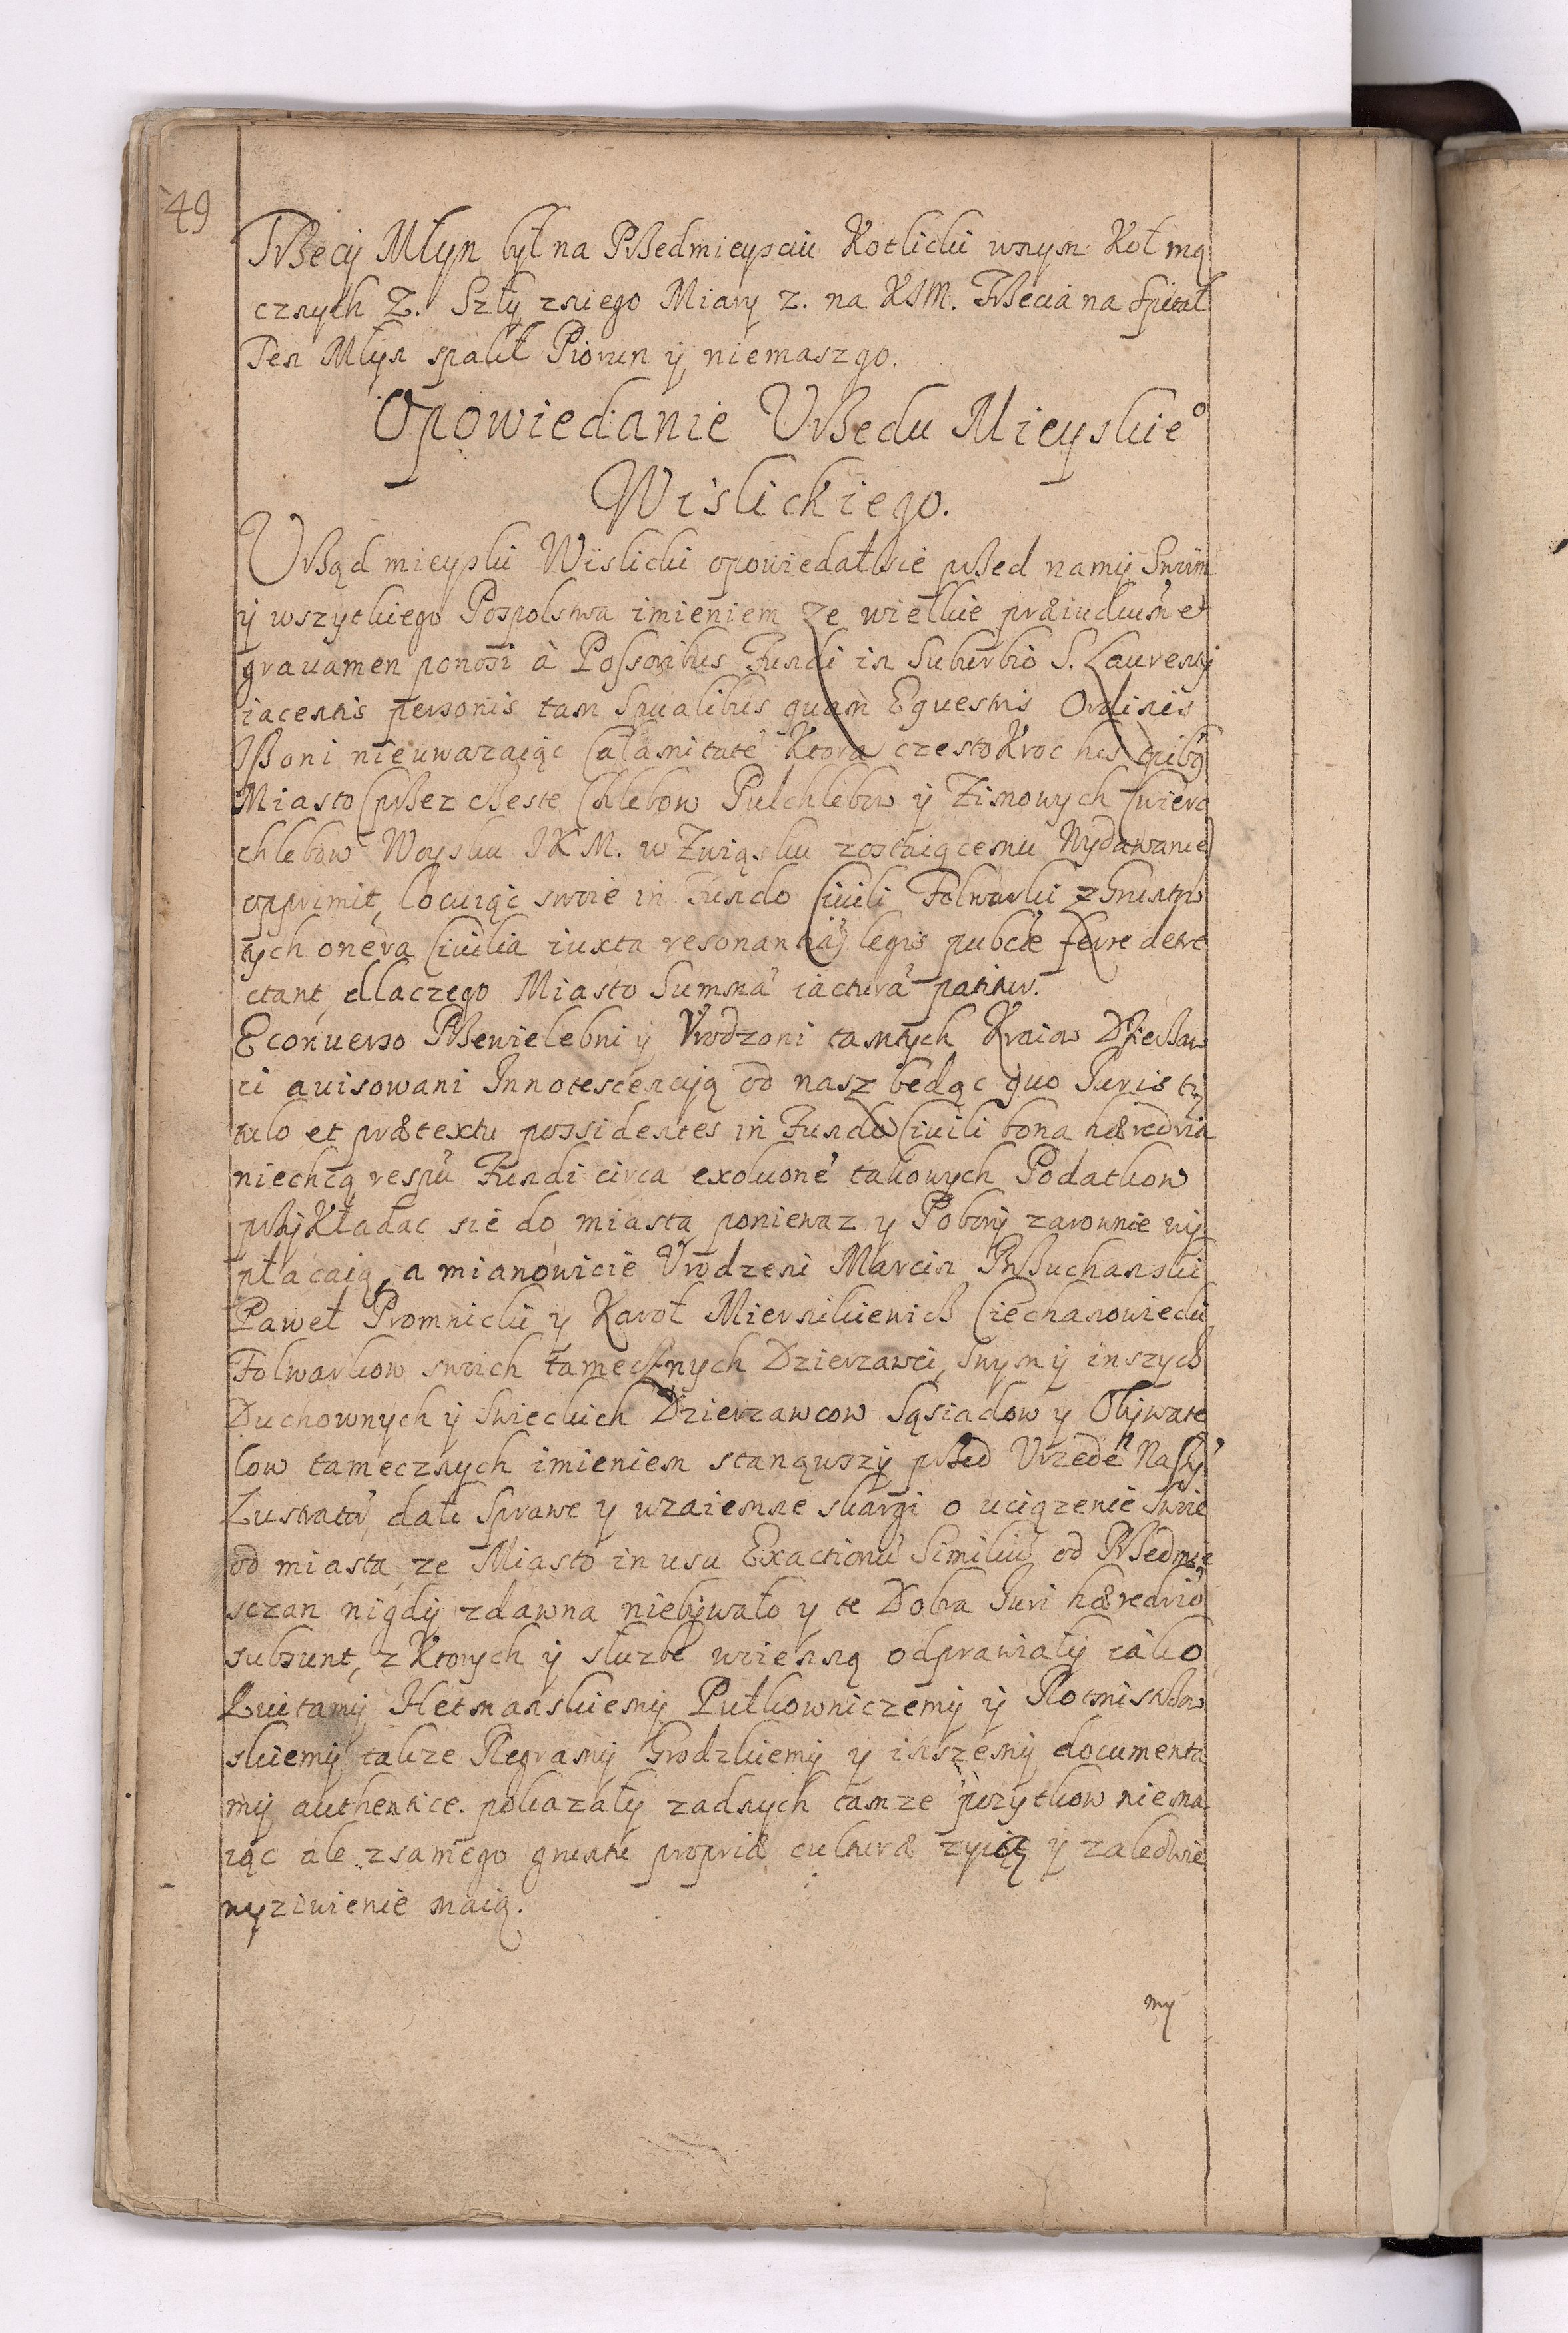 49
Trzeci Młyn był na Przedmieysciu Kotlicki wnym Koł mą
cznych 2. Szły zniego Miary 2. na KJM. Trzecia na Spital
Ten Młyn spalił Piorun ÿ niemaszgo.
Opowiedanie Vrzedu Mieyskie°
Wislickiego.
Vrząd mieyski Wislicki opowiedałsie przed namÿ Swim
ÿ wszytkiego Pospolstwa imieniem ze wielkie præiudium et
grauamen ponosi à Possoribus Fundi in Suburbio S. Laurentÿ
iacentis personis tam Spualibus quam Equestris Ordinis
Jz oni nieuwazaiąc Calamitate Ktora czestokroc his tpibꝫ
Miasto (przez cżeste Chlebow Pulchlebow ÿ Zimowych Cwierc
chlebow Woysku JKM. w Związku zostaiącemu Wydawanie)
opprimit, locuiąc swoie in Fundo Ciuili Folwarki z Gruntow
tych onera Ciuilia iuxta resonantiā legis pubcæ ferre detre
ctant, dlaczego Miasto Summā iacturā patitur.
Econuerso Przewielebni ÿ Vrodzoni tamtych Kraiow Dzierżaw
ci auisowani Innotescencyą od nasz będąc quo Juris ti
tulo et prætextu possidentes in Fundo Ciuili bona hæredria
niechcą respū Fundi circa exoluonē takowych Podatkow
przykładac sie do miasta poniewaz y Poborÿ zarownie wÿ
płacaią, a mianowicie Vrodzeni Marcin Przuchanski
Paweł Promnicki y Karol Miernikiewicz Ciechanowiecki
Folwarkow swoich tamecznych Dzierzawci, Swym ÿ inszych
Duchownych ÿ Swieckich Dzierzawcow Sąsiadow y Obÿwate
low tamecznych imieniem stanąwszÿ przed Vrzedē Naszÿ
Lustratō, dali Sprawe y wzaiemne skargi o uciązenie swoie
od miasta, ze Miasto in usu Exactionū Similiū od Przedmie
sczan nigdÿ zdawna niebÿwało y te Dobra Juri hæredrio
subsunt, z Ktorych ÿ słuzbe woienną odprawiałÿ iako
Kwitamÿ Hetmanskiemÿ Pułkowniczemÿ ÿ Rotmistrzow
skiemÿ takze Regramÿ Grodzkiemÿ ÿ inszemÿ documenta
mÿ authentice pokazałÿ zadnych tamze pozytkow niema
iąc ale zsamego gruntu propriæ culturæ zyią ÿ zaledwie
wyziwienie maią.
my